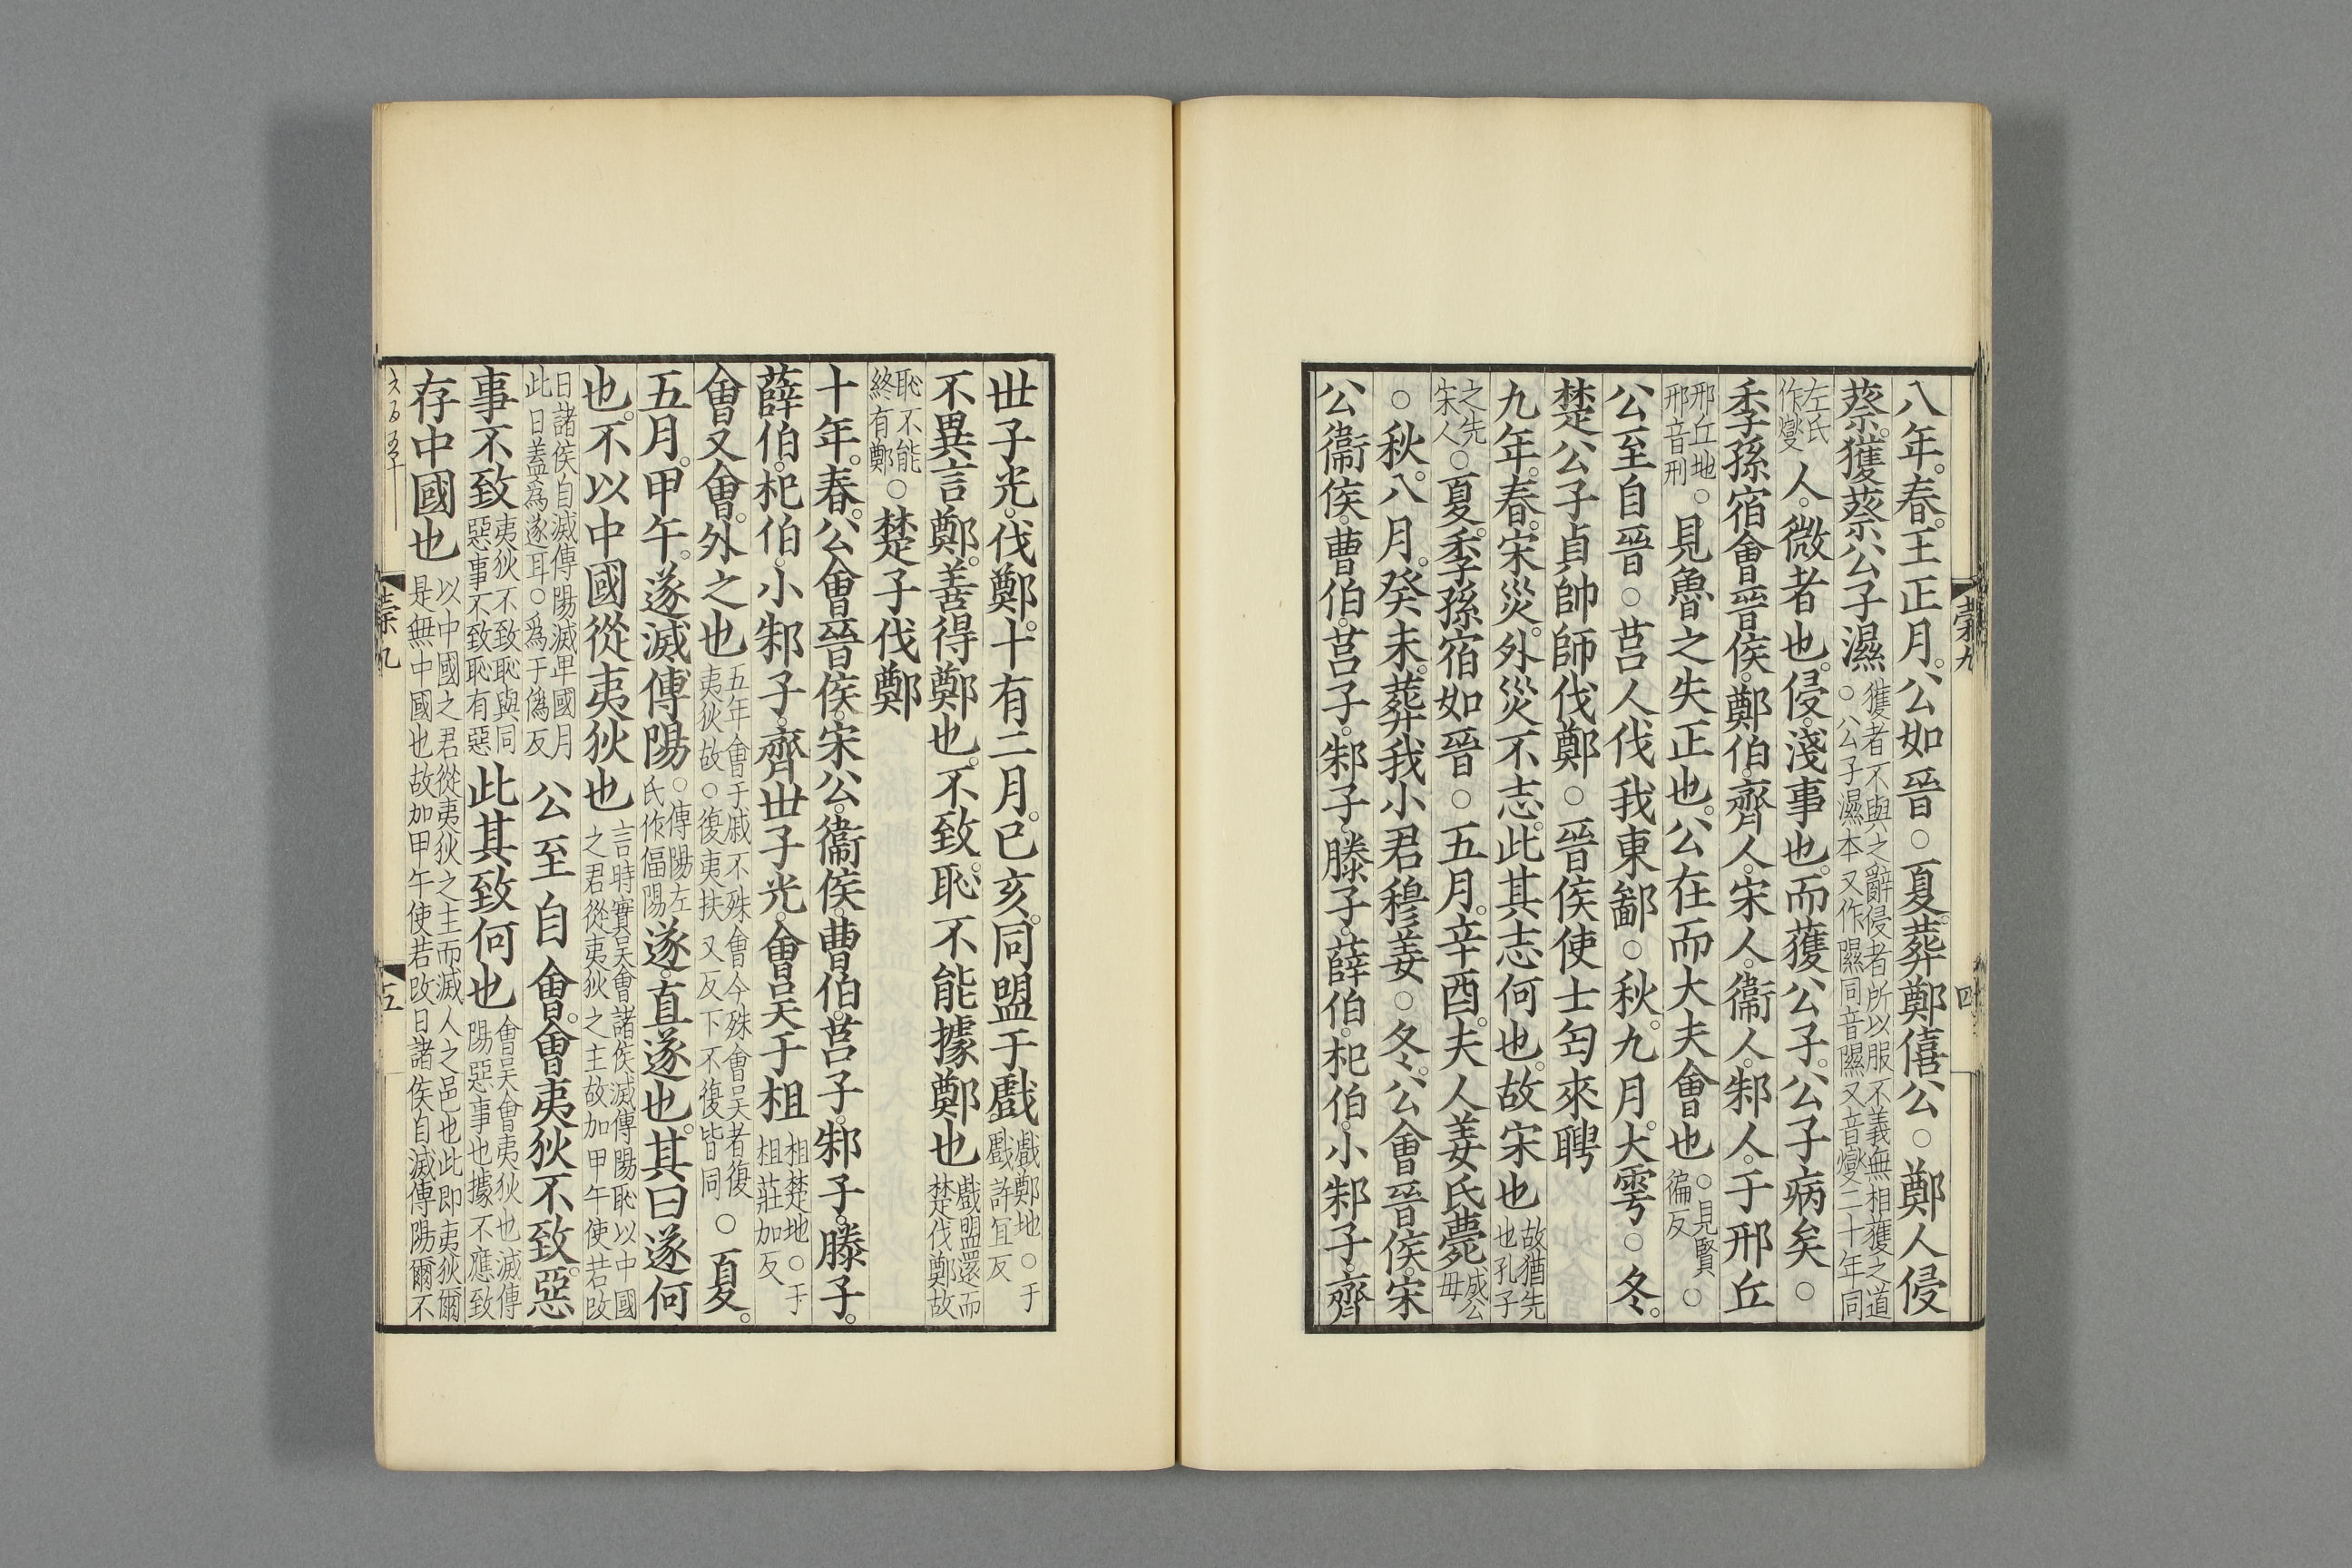 八年。春。王正月。公如晉○夏。葬鄭僖公○鄭人侵
蔡。獲蔡公子濕獲者不與之辭侵者所以服不義無相獲之道○公子濕本又作隰同音隰又音燮二十年同
左氏作燮人。微者也。侵。淺事也。而獲公子。公子病矣○
季孫宿會晉侯。鄭伯。齊人。宋人。衞人。邾人。于邢丘
邢丘地邢音刑○見魯之失正也。公在而大夫會也○見賢徧反○
公至自晉○莒人伐我東鄙○秋。九月。大雩○冬。
楚公子貞帥師伐鄭○晉侯使士匄來聘
九年。春。宋災。外災不志。此其志何也。故宋也故猶先也孔子
之先宋人○夏。季孫宿如晉○五月。辛酉。夫人姜氏薨成公母
○秋。八月。癸未。葬我小君穆姜○冬。公會晉侯。宋
公衞侯。曹伯。莒子。邾子。滕子。薛伯。杞伯。小邾子。齊
穀九
四
世子光。伐鄭。十有二月。已亥。同盟于戲戲鄭地○于戲許宜反
不異言鄭。善得鄭也。不致。恥不能據鄭也戲盟還而楚伐鄭故
恥不能終有鄭○楚子伐鄭
十年。春。公會晉侯。宋公。衞侯。曹伯。莒子。邾子。滕子。
薛伯。杞伯。小邾子。齊世子光。會吴于柤柤楚地○于柤莊加反
會又會。外之也五年會于戚不殊會今殊會吴者復夷狄故○復夷扶又反下不復皆同○夏。
五月。甲午。遂滅傅陽○傅陽左氏作偪陽遂。直遂也。其曰遂何
也。不以中國從夷狄也言時實吴會諸侯滅傅陽恥以中國之君從夷狄之主故加甲午使若改
日諸侯自滅傅陽滅卑國月此日蓋爲遂耳○爲于僞反公至自會。會夷狄不致。惡
事不致夷狄不致恥與同惡事不致恥有惡此其致何也會吴會夷狄也滅傅陽惡事也據不應致
存中國也以中國之君從夷狄之主而滅人之邑也此即夷狄爾是無中國也故加甲午使若改日諸侯自滅傅陽爾不
五